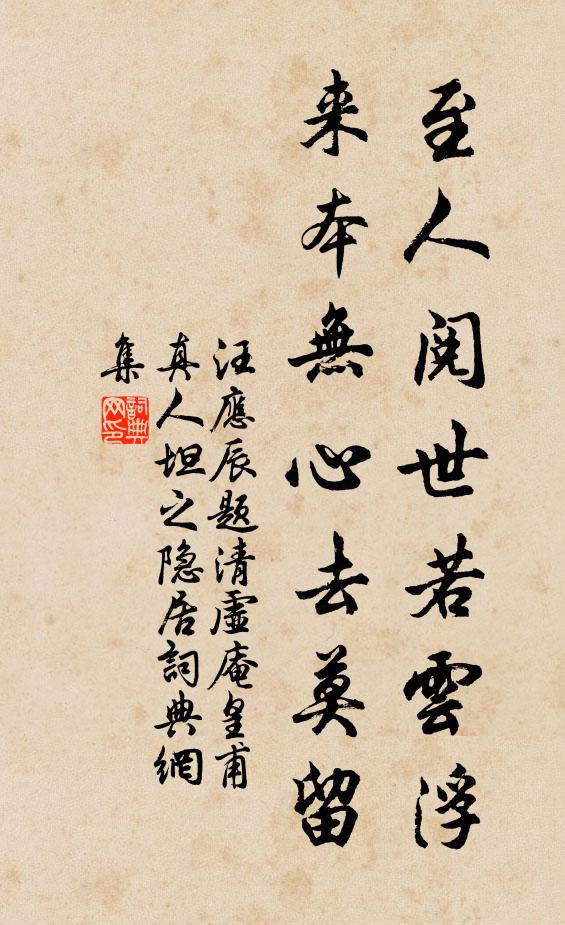 至人阅世若雲浮
来本無心去莫留
汪應辰题清虛庵皇甫
真人坦之隐居詞典網
集
詞典
网印